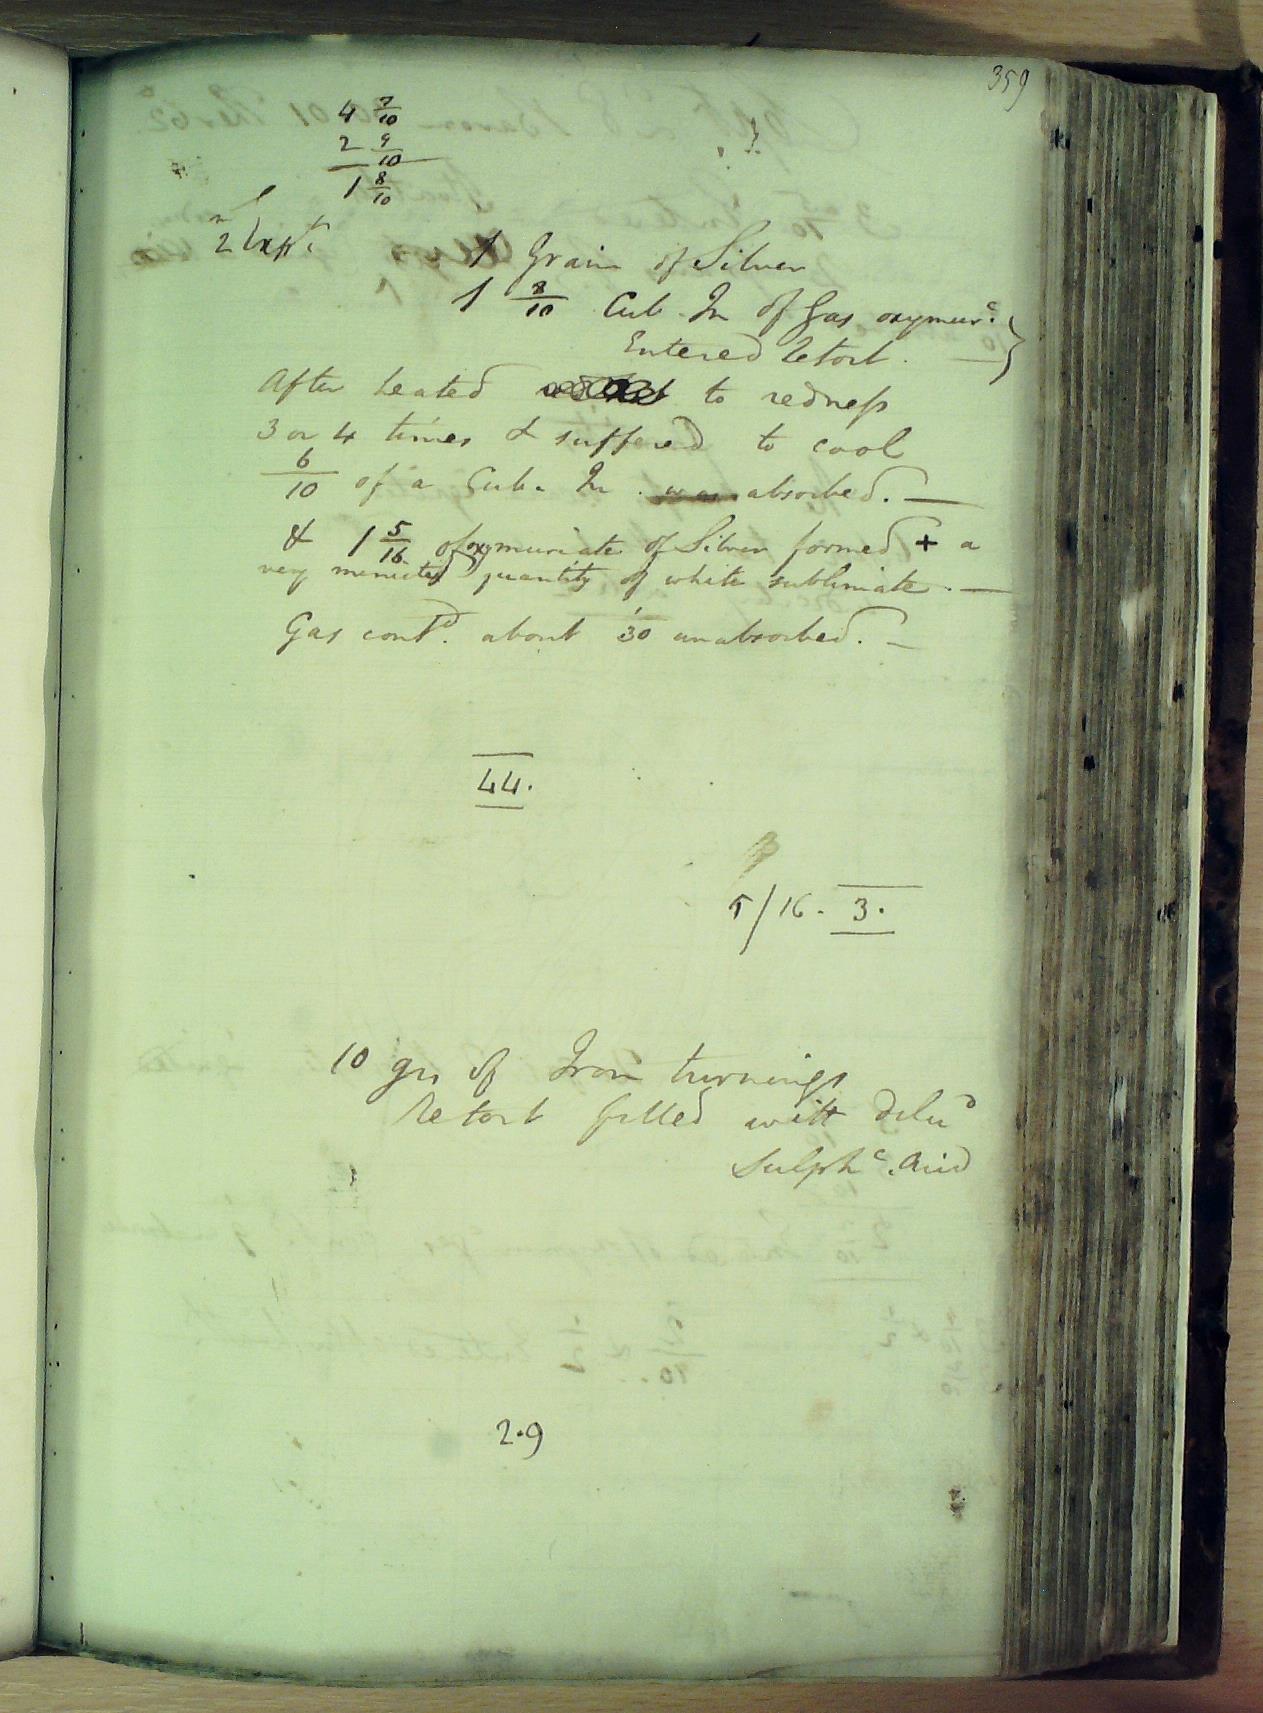 359
4 7/10
2 9/10
1 8/10
2 Expt.
1 Grain of Silver
1 8/10 Cub. In of Gas oxymurc.
Entered Retort.
After heated to redness
3 or 4 times & suffered to cool
6/10 of a Cub. In. absorbed. —
& 1 5/16 of oxymuriate of Silver formed + a
very minute quantity of white sublimate. —
Gas contd. about 30 unabsorbed. —
44.
5/16. 3.
10 grs of Iron turnings
Retort filled with Dilud
Sulphc. Acid
2.9